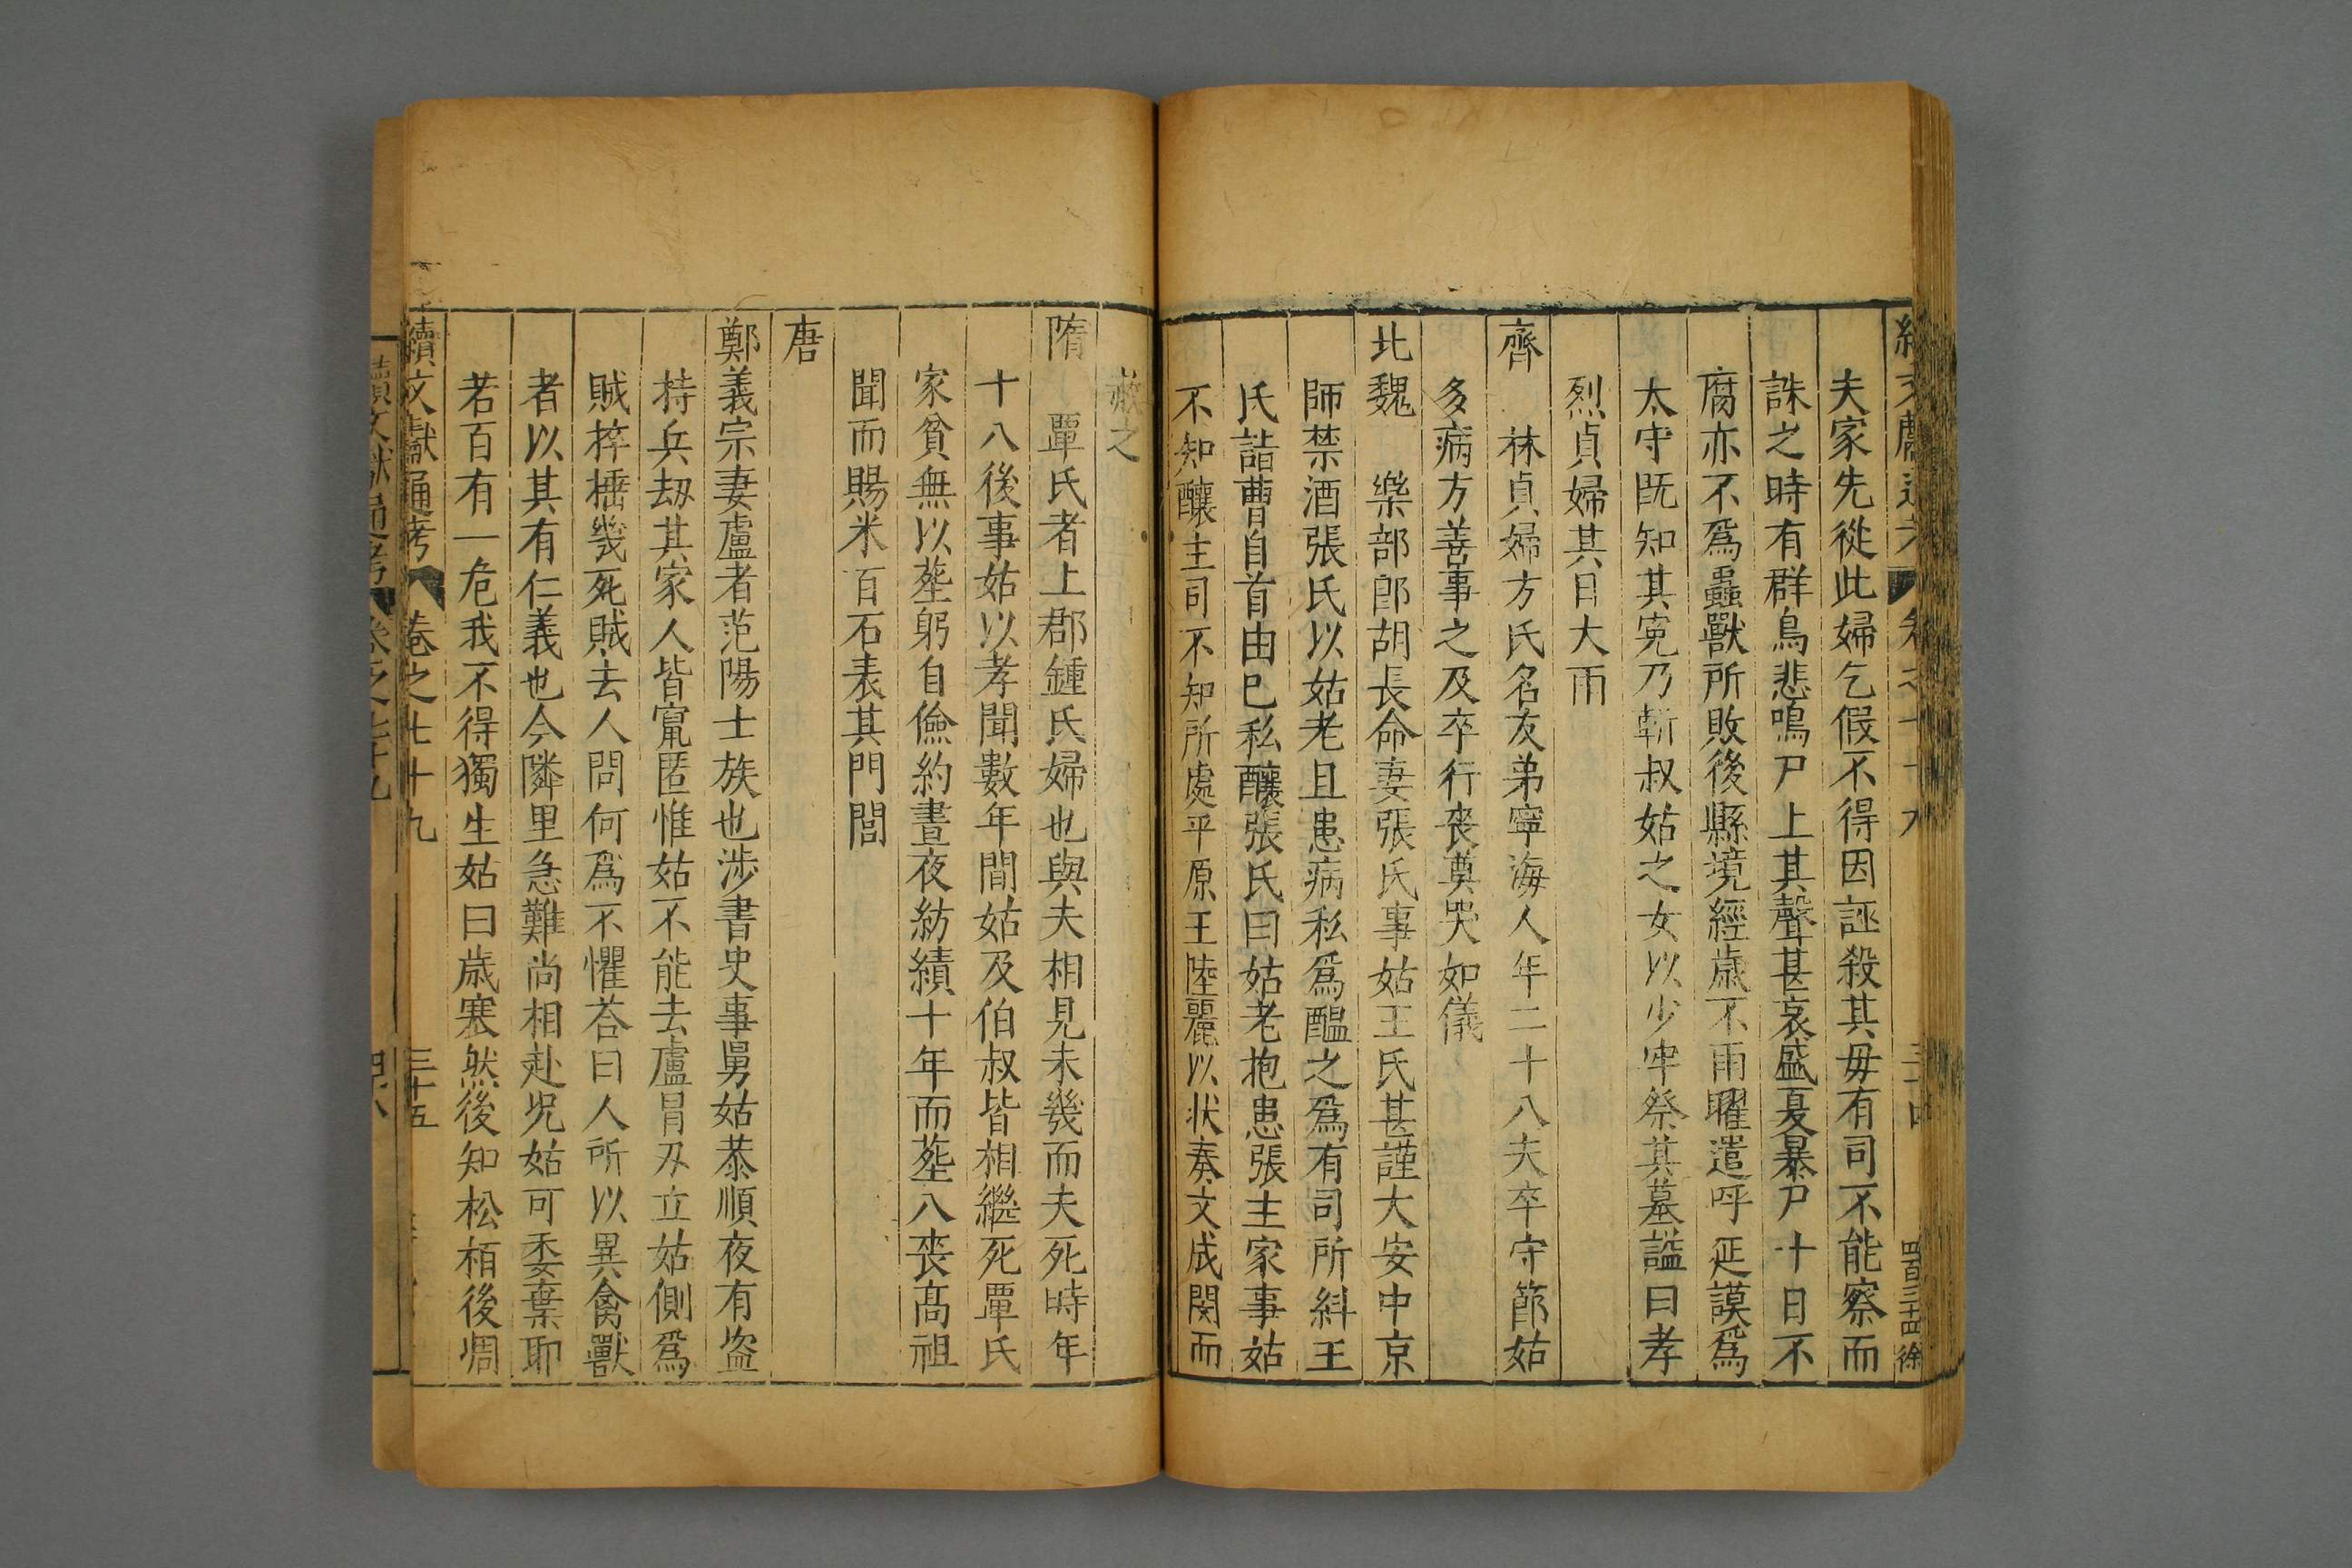 夫家先從此婦乞假不得因誣殺其毋有司不能察而
誅之時有群鳥悲鳴尸上其聲甚哀盛夏暴尸十日不
腐亦不爲蟲獸所敗後縣境經歲不雨曜遣呼延謨爲
太守旣知其寃乃斬叔姑之女以少牢祭其墓謚曰孝
烈貞婦其日大雨
齊　林貞婦方氏名友弟寧海人年二十八夫卒守節姑
多病方善事之及卒行喪奠哭如儀
北魏　樂部郎胡長命妻張氏事姑王氏甚謹大安中京
師禁酒張氏以姑老且患病私爲醞之爲有司所糾王
氏詣曹自首由巳私釀張氏曰姑老抱患張主家事姑
不知釀主司不知所處平原王陸麗以状奏文成閔而
赦之
隋　覃氏者上郡鍾氏婦也與夫相見未幾而夫死時年
十八後事姑以孝聞數年間姑及伯叔皆相繼死覃氏
家貧無以塟躬自儉約晝夜紡績十年而塟八喪髙祖
聞而賜米百石表其門閭
唐
鄭義宗妻盧者范陽士族也渉書史事舅姑恭順夜有盗
持兵刼其家人皆竄匿惟姑不能去盧冒刄立姑側爲
賊捽捶幾死賊去人問何爲不懼荅曰人所以異禽獸
者以其有仁義也今隣里急難尚相赴况姑可委棄耶
若百有一危我不得獨生姑曰歳寒然後知松栢後凋
續文獻通考　卷之七十九　三十五